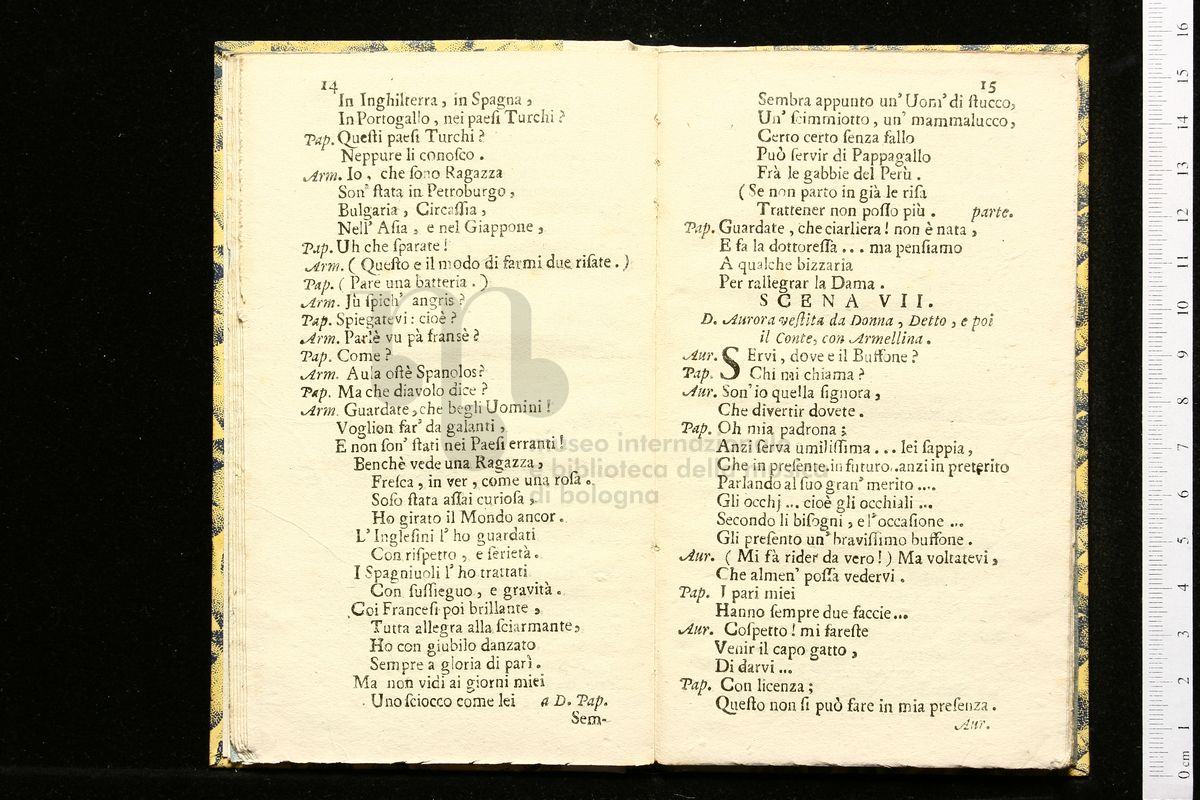 14
In Inghilterra, in Spagna,
In Portogallo, nei paesi Turchi?
Pap. Questi paesi Turchi?
Neppure li conosco.
Arm. Io, che sono Ragazza
Son' stata in Petroburgo,
Bulgaria, Circassia,
Nell' Asia, e nel Giappone,
Pap. Uh che sparate!
Arm. (Questo e il modo di farmi due risate.)
Pap. (Pare una batteria.)
Arm. Jù spich' angris?
Pap. Spiegatevi: cioè?
Arm. Parlè vu pà fransè?
Pap. Come?
Arm. Aula ostè Spanolos?
Pap. Ma che diavolo dice?
Arm. Guardate, che begli Uomini!
Voglion far' da galanti,
E non son' stati nei Paesi erranti!
Benchè vede una Ragazza,
Fresca, in ver, come una rosa.
Soso stata assai curiosa,
Ho girato il Mondo ancor.
L' Inglesini l' ho guardati
Con rispetto, e serietà.
I Spagniuoli l' ho trattati
Con sussieguo, e gravità.
Coi Francesi poi brillante,
Tutta allegra alla sciarmante,
Ho con giubilo danzato
Sempre a gloria di parì.
Ma non vidi ai giorni miei
Uno sciocco come lei a D. Pap.
Sem-
15
Sembra appunto un' Uom' di stucco,
Un' scimmiotto, un' mammalucco,
Certo certo senza fallo
Può servir di Pappagallo
Frà le gabbie del Perù.
(Se non parto in già le risa
Trattener non posso più. parte.
Pap. Guardate, che ciarliera! non è nata,
E fa la dottoressa... ma pensiamo
A qualche bizzaria
Per rallegrar la Dama.
SCENA VII.
D. Aurora vestita da Donna, Detto, e poi
il Conte, con Armellina.
Aur. SErvi, dove e il Buffone?
Pap. Chi mi chiama?
Aur. Son' io quella signora,
Che divertir dovete.
Pap. Oh mia padrona;
Anzi serva umilissima... lei sappia,
Che in presente, in futuro, anzi in preterito
Parlando al suo gran' merito ...
Gli occhj ... cioè gli occhiali ...
Secondo li bisogni, e l'occasione ...
Gli presento un' bravissimo buffone.
Aur. (Mi fà rider da vero!) Ma voltatevi,
Che almen' possa vedervi.
Pap. I pari miei
Hanno sempre due faccie...
Aur. Cospetto! mi fareste
Venir il capo gatto,
Di darvi ...
Pap. Con licenza;
Questo non si può fare in mia presenza.
Aur.
museo internazionale
e biblioteca della musica
di bologna
0 cm 1 2 3 4 5 6 7 8 9 10 11 12 13 14 15 16